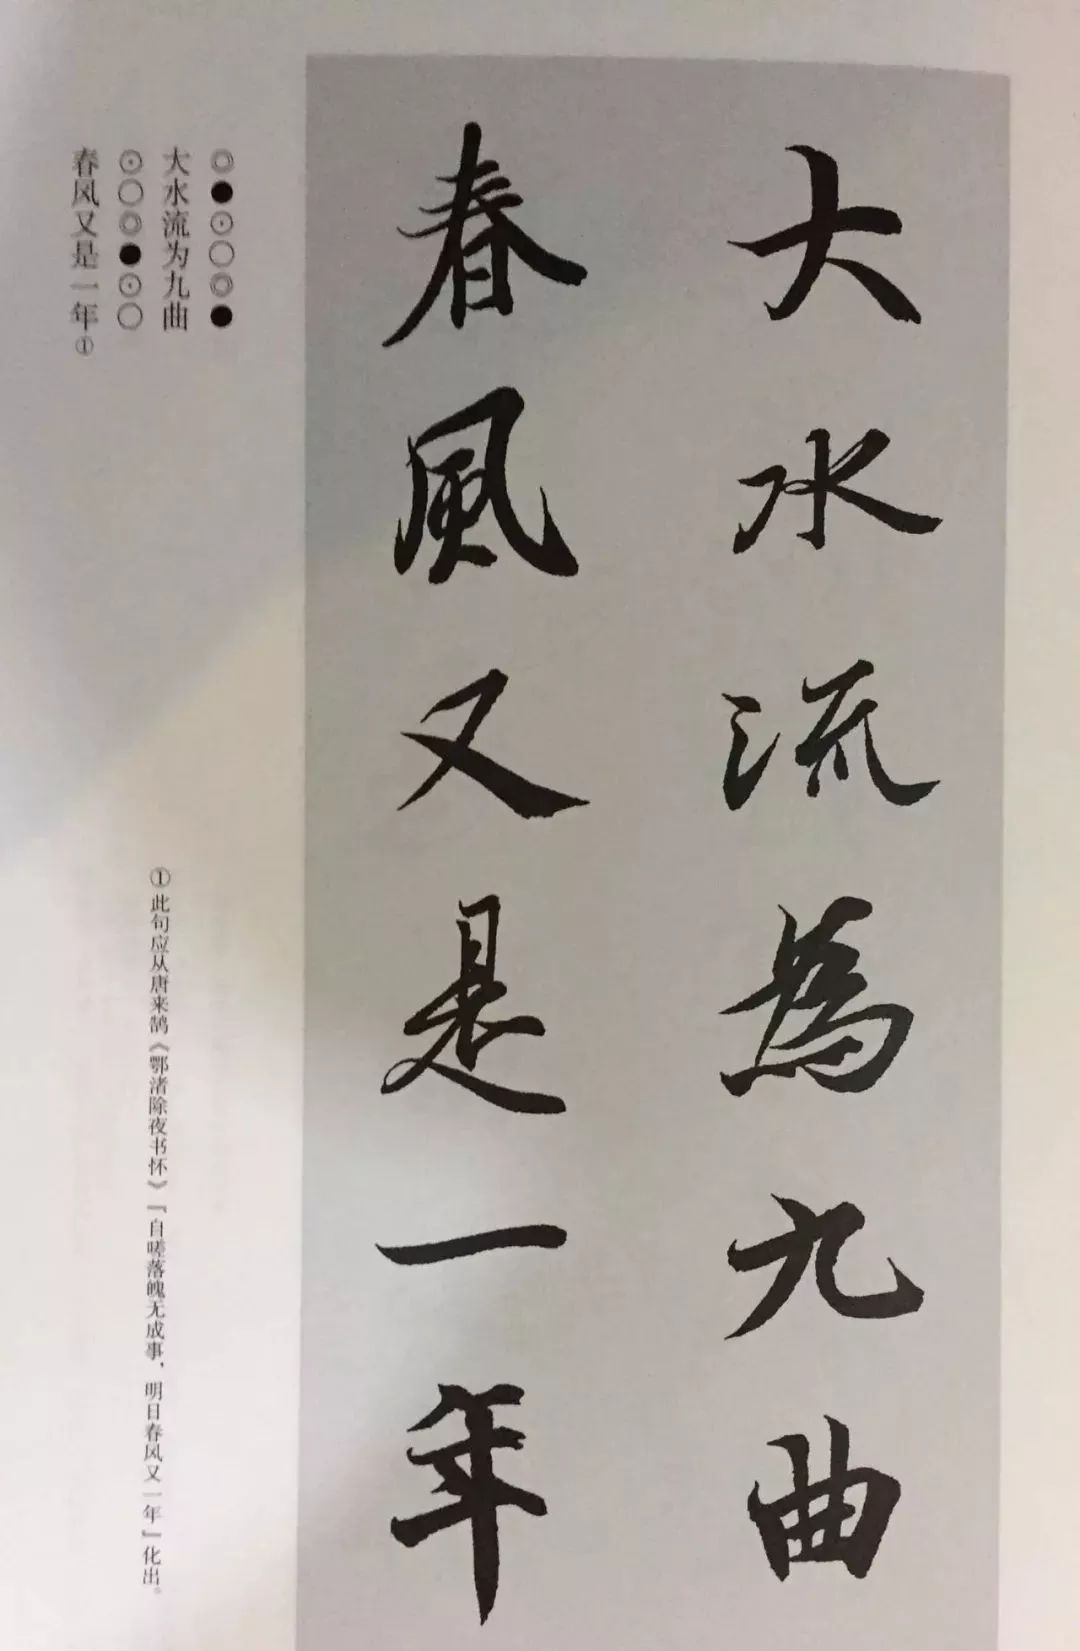 大水流為九曲
春風又是一年
◎●⊙○◎●
大水流为九曲
⊙○◎●⊙○
春风又是一年①
①此句应从唐来鹄《鄂渚除夜书怀》「自嗟落魄无成事，明日春风又一年」化出。